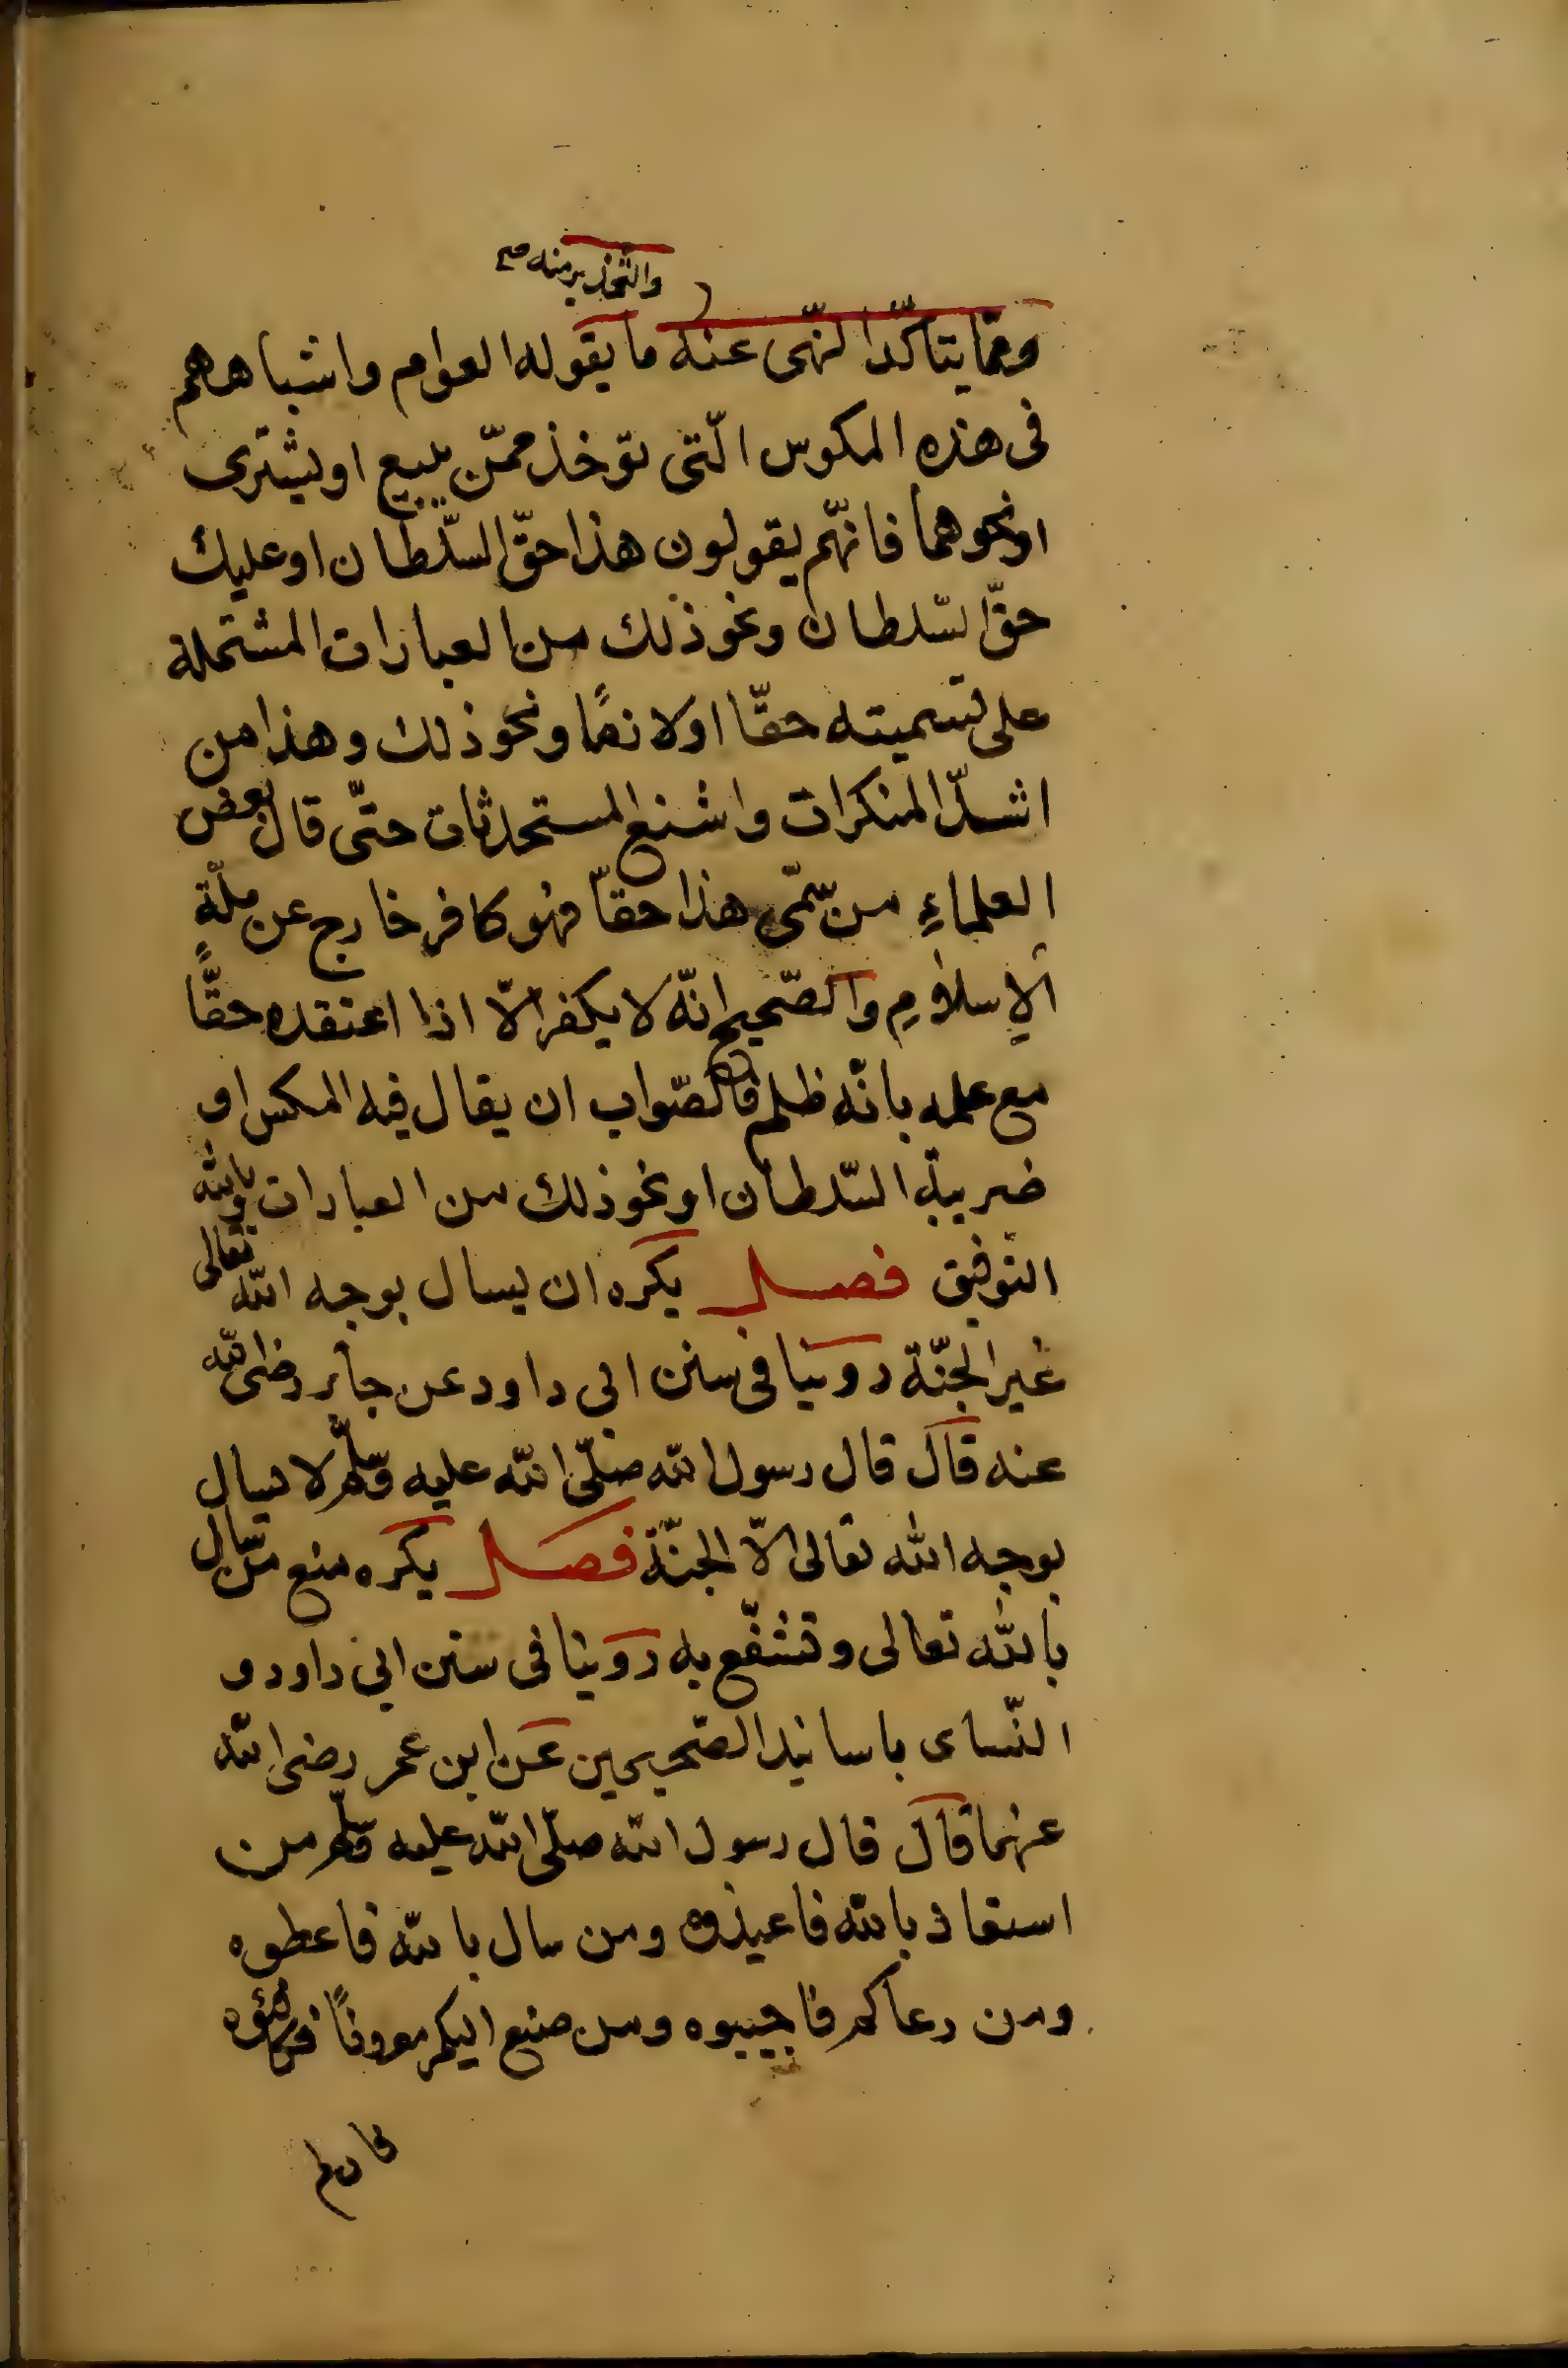 والتحذير منه صح
ومما يتاكّد النّهى عنه ما يقوله العوام واشباههم
فى هذه المكوس الّتى تؤخذ ممّن يبيع او يشترى
او نحوهما فانّهم يقولون هذا حقّ السّلطان او عليك
حقّ السّلطان ونحو ذلك من العبارات المشتملة
على تسميته حقّا او لا نمًا ونحو ذلك وهذا من
اشدّ المنكرات واشنع المستحدثات حتّى قال بعض
العلماءِ من سمّى هذا حقاّ فهو كافر خارج عن ملّةِ
الاِسلامِ والصّحيح انّه لا يكفر الّا اذا اعتقده حقًّا
مع علمه بانّه ظلم فالصّواب ان يقال فيه المكس او
ضريبة السّلطان او نحو ذلك من العبارات وبالله
التوفيق فصل يكره ان يسال بوجه الله تعالى
غير الجنّة روينا فى سنن ابى داود عن جابر رضى الله
عنه قال قال رسول الله صلّى الله عليه وسلّم لا يسال
بوجه الله تعالى الّا الجنّة فصل يكره منع من سال
بالله تعالى وتشفّع به روينا فى سنن ابى داود و
النّساى باسانيد الصّحيحين عن ابن عمر رضى الله
عنهما قال قال رسول الله صلّى الله عليه وسلّم من
استعاذ بالله فاعيذوه ومن سال بالله فاعطوه
ومن دعاكم فاجيبوه ومن صنع اليكم معروفًا فكافئوه
فان لم